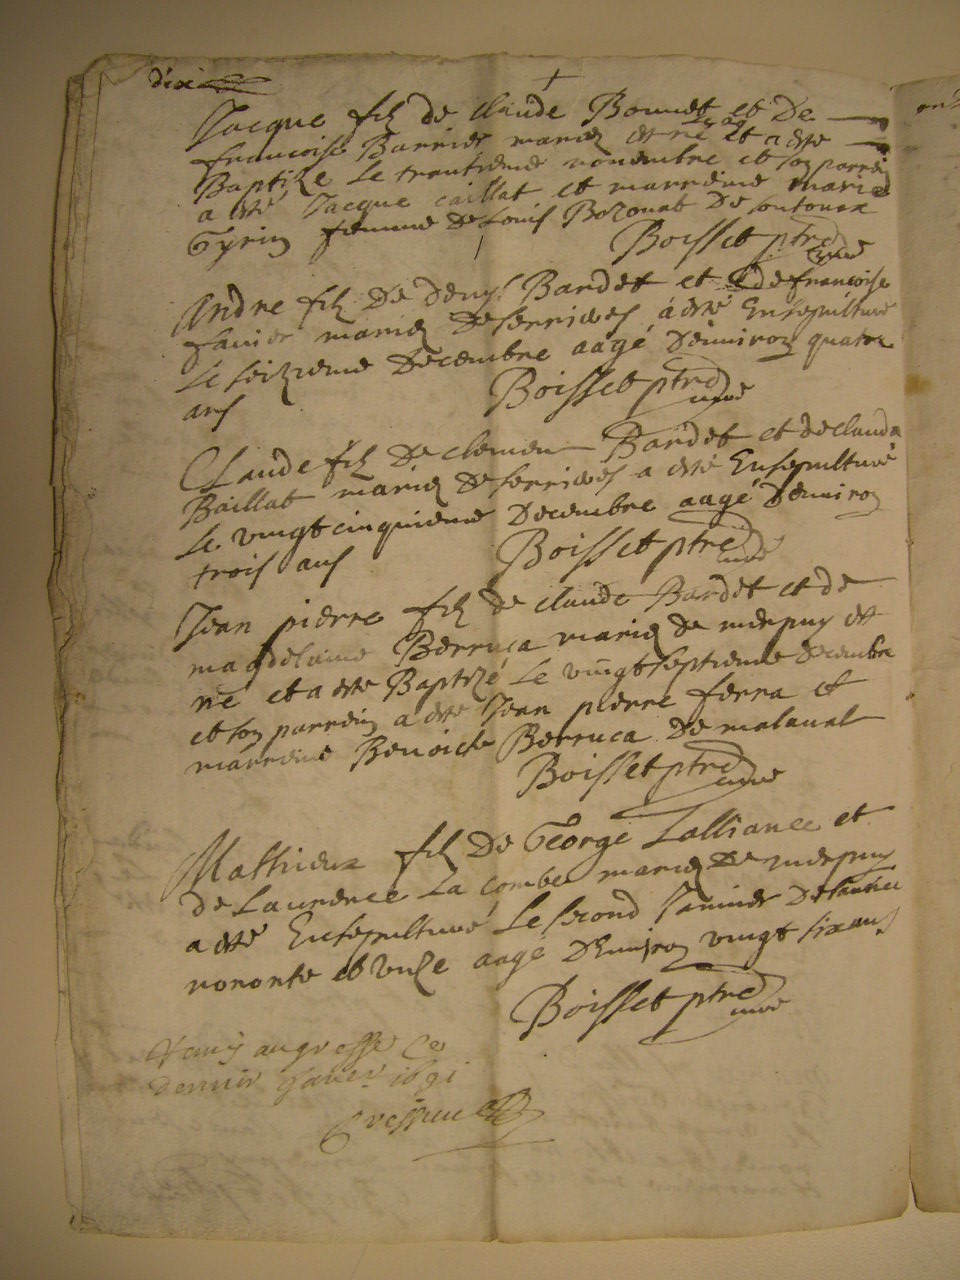 dix
Jacque filz de Claude Bonnet et De
francoise Barrier mariez est né et a esté
Baptize Le trantieme novembre et son parrein
a esté Jacque Caillat et marreine marie
Tyrin femme De Louis Bozonat De
Boisset ptre curé
Andre filz De Denys Bardet et de francoise
Janier mariez De serrieres a esté Ensepulturé
Le seizieme Decembre aagé Denviron quatre
ans
Boisset ptre curé
Claude filz De clement Bardet et de clauda
Baillat mariez De serrieres a esté Ensepulturé
Le vingtcinquieme Decembre aagé Denviron
trois ans
Boisset ptre curé
Jean pierre filz de claude Bardet et de
magdelaine Berruca mariez de merpuy est
né et a esté Baptizé Le vingtseptieme Decembre
et son parrein a esté Jean pierre ferra et
marreine Benoicte Berruca De malaval
Boisset ptre curé
Mathieux filz De George Lalliance et
de Laurence La combe mariez De merpuy
a esté Ensepulturé Le second Janvier De l'année
nonante et unze aagé Denviron vingt six ans
Boisset ptre curé
Remis au greffe Le
dernier Janvier 1691